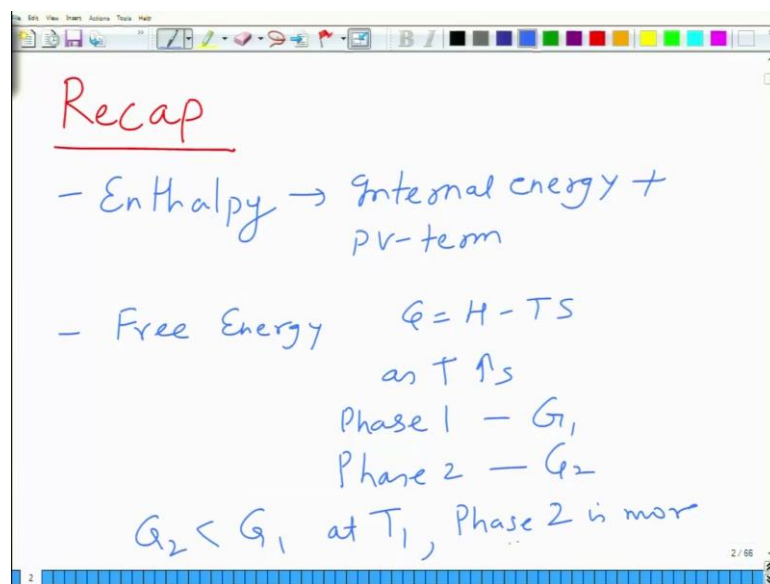 File Edit View Insert Actions Tools Help
B I
Recap
- Enthalpy → Internal energy +
PV-term
- Free Energy G = H - TS
as T ↑s
Phase 1 - G1
Phase 2 - G2
G2 < G1 at T1, Phase 2 is more
2 / 66
2